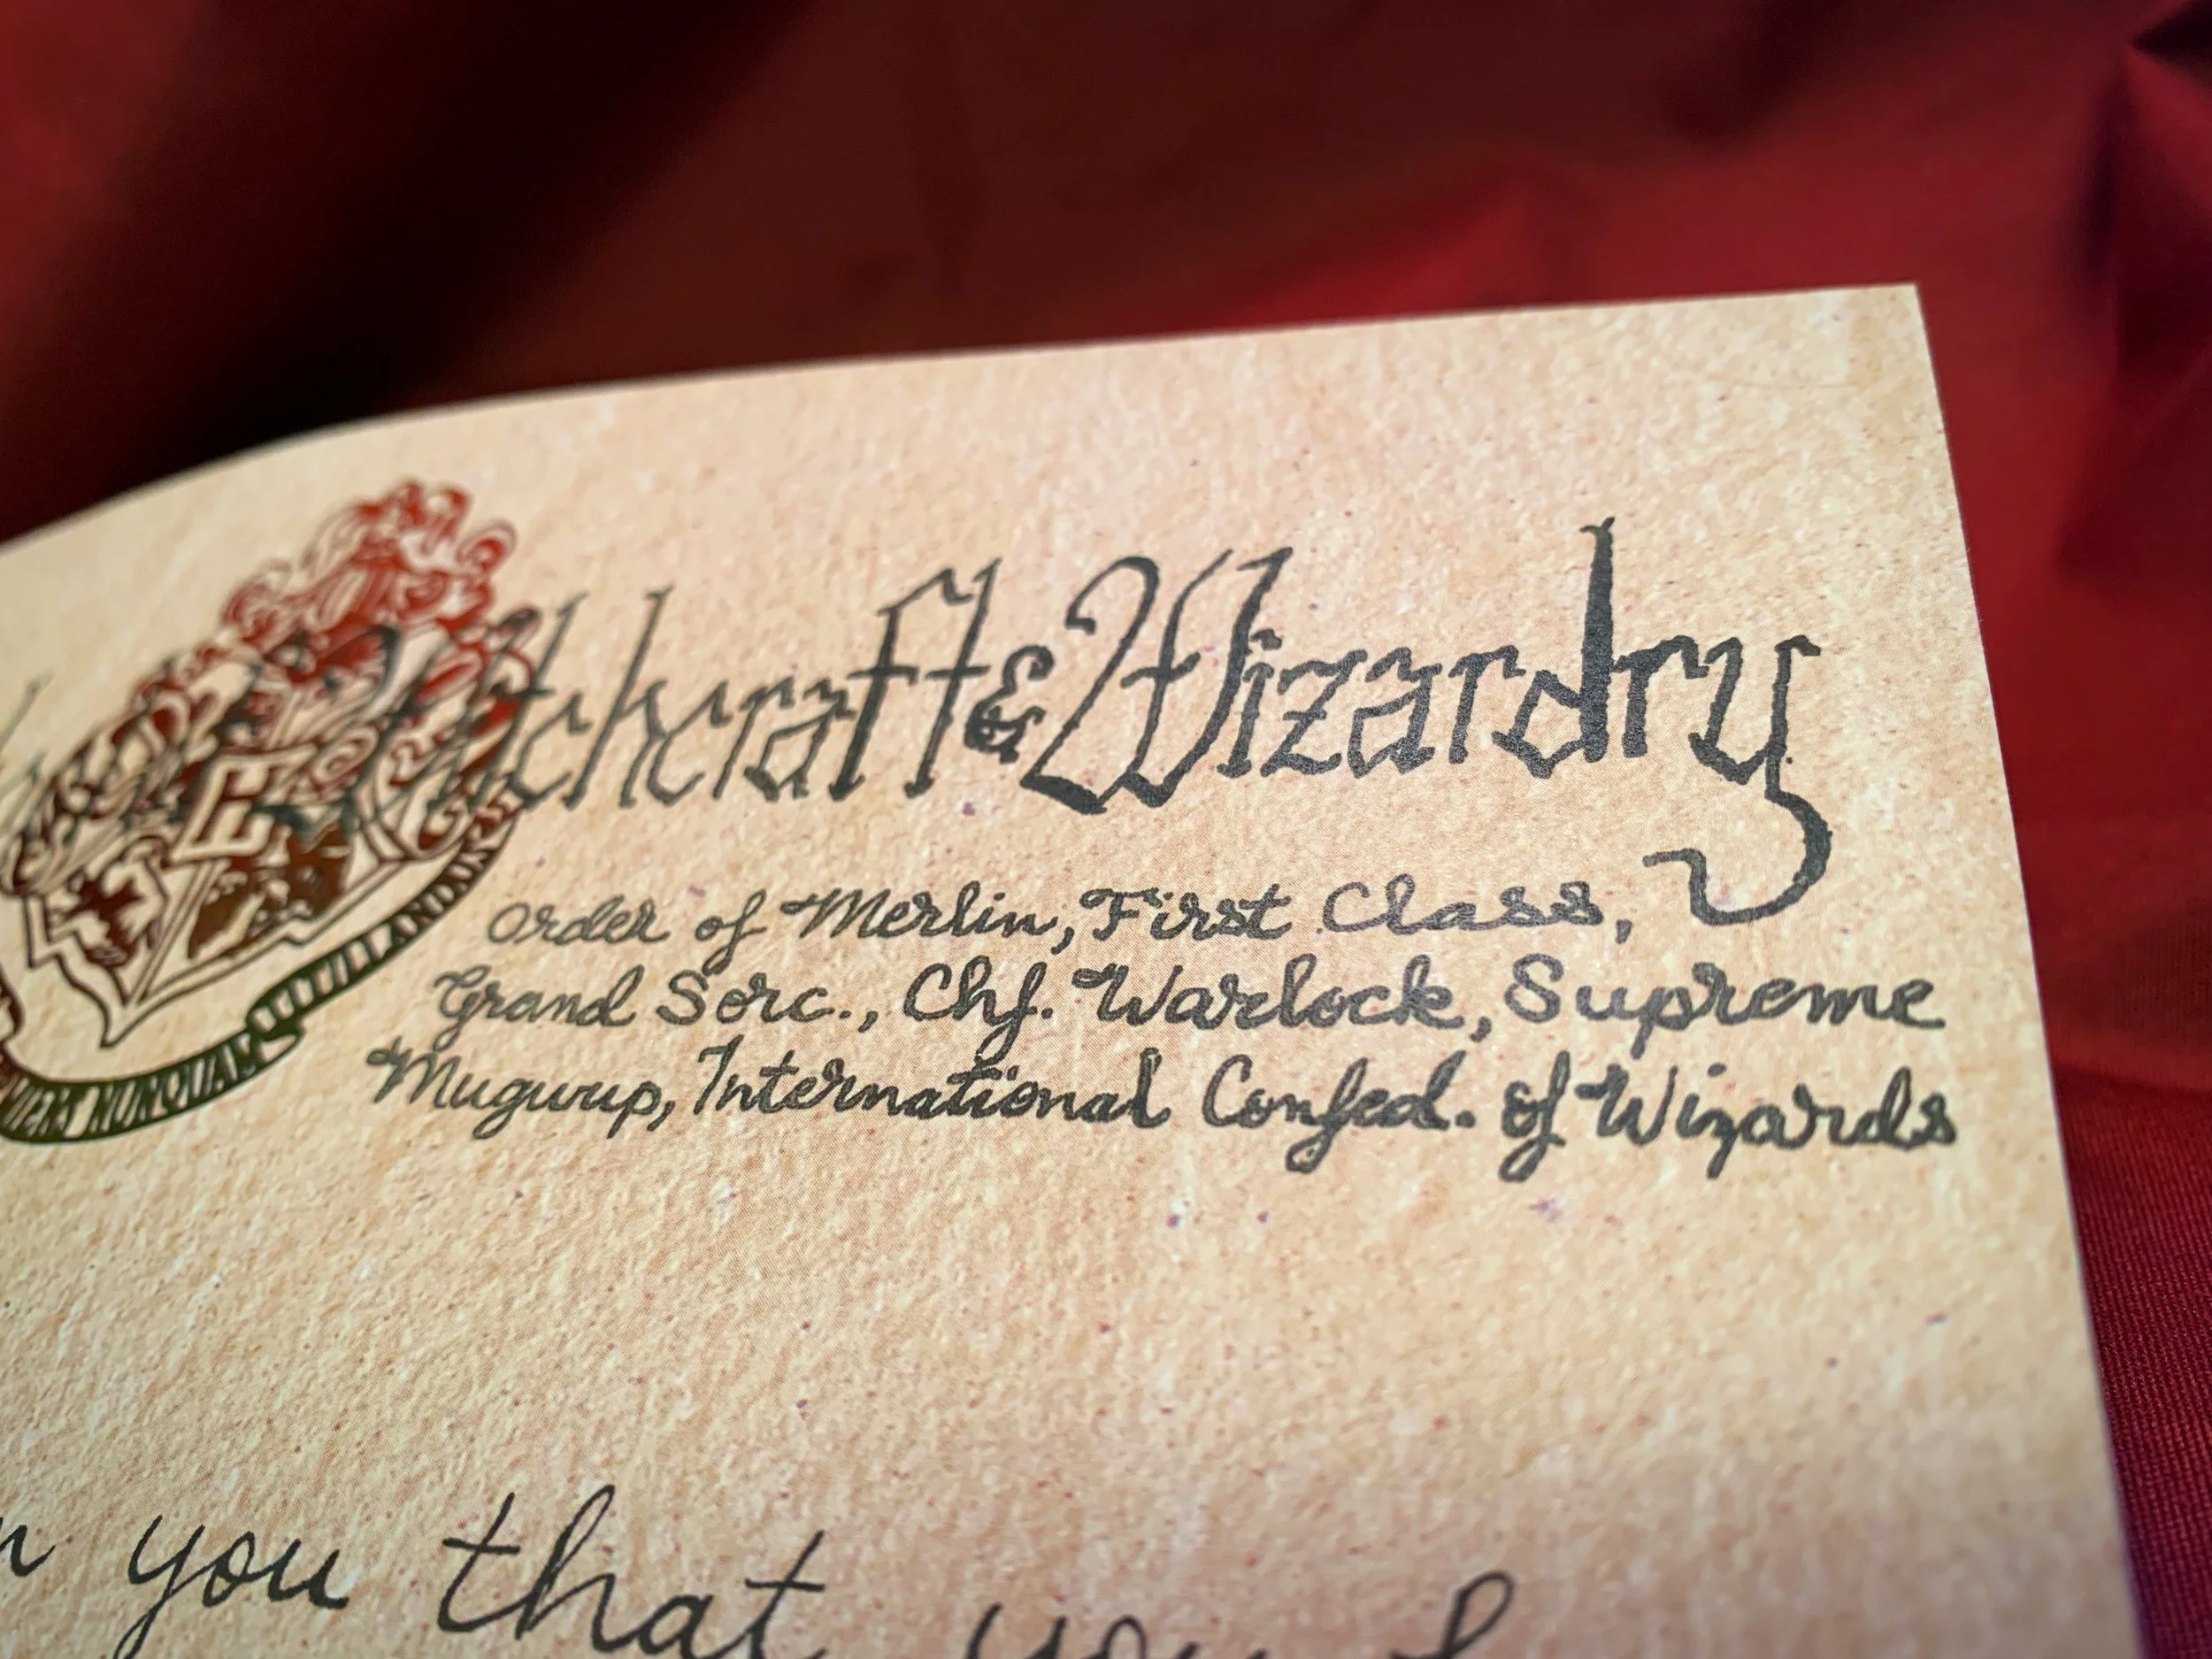 Witchcraft & Wizardry
Order of Merlin, First Class,
Grand Sorc., Chf. Warlock, Supreme
Mugwup, International Confed. of Wizards
NUNQUAM TITILLANDUS
you that you